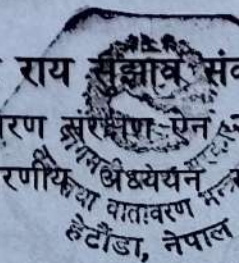 राय सुझाव संव
रण संरक्षण ऐन
रणीय अध्ययन
वातावरण
हेटौंडा, नेपाल